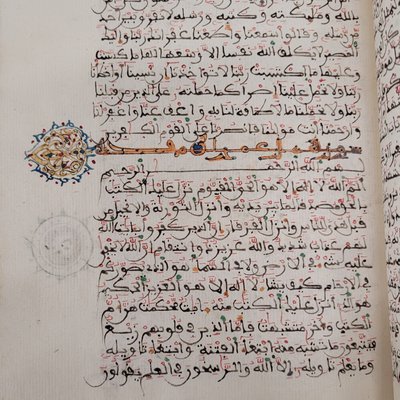 بالله وملئكته وكتبه ورسله لا نفرق بين احد
من رسله وقالوا سمعنا واطعنا غفرانك ربنا واليك
المصير لا يكلف الله نفسا الا وسعها لها ما كسبت
وعليها ما اكتسبت ربنا لا تواخذنا ان نسينا او اخطانا
ربنا ولا تحمل علينا اصرا كما حملته على الذين من قبلنا
ربنا ولا تحملنا ما لا طاقة لنا به واعف عنا واغفر لنا
وارحمنا انت مولينا فانصرنا على القوم الكفرين
سورة ال عمران
بسم الله الرحمن الرحيم
الم الله لا اله الا هو الحي القيوم نزل عليك الكتب
بالحق مصدقا لما بين يديه وانزل التورية والانجيل من
قبل هدى للناس وانزل الفرقان ان الذين كفروا بايت الله
لهم عذاب شديد والله عزيز ذو انتقام ان الله لا يخفى
عليه شيء في الارض ولا في السماء هو الذي يصوركم
في الارحام كيف يشاء لا اله الا هو العزيز الحكيم
هو الذي انزل عليك الكتب منه ايت محكمت هن ام
الكتب واخر متشبهت فاما الذين في قلوبهم زيغ
فيتبعون ما تشبه منه ابتغاء الفتنة وابتغاء تاويله
وما يعلم تاويله الا الله والرسخون في العلم يقولون